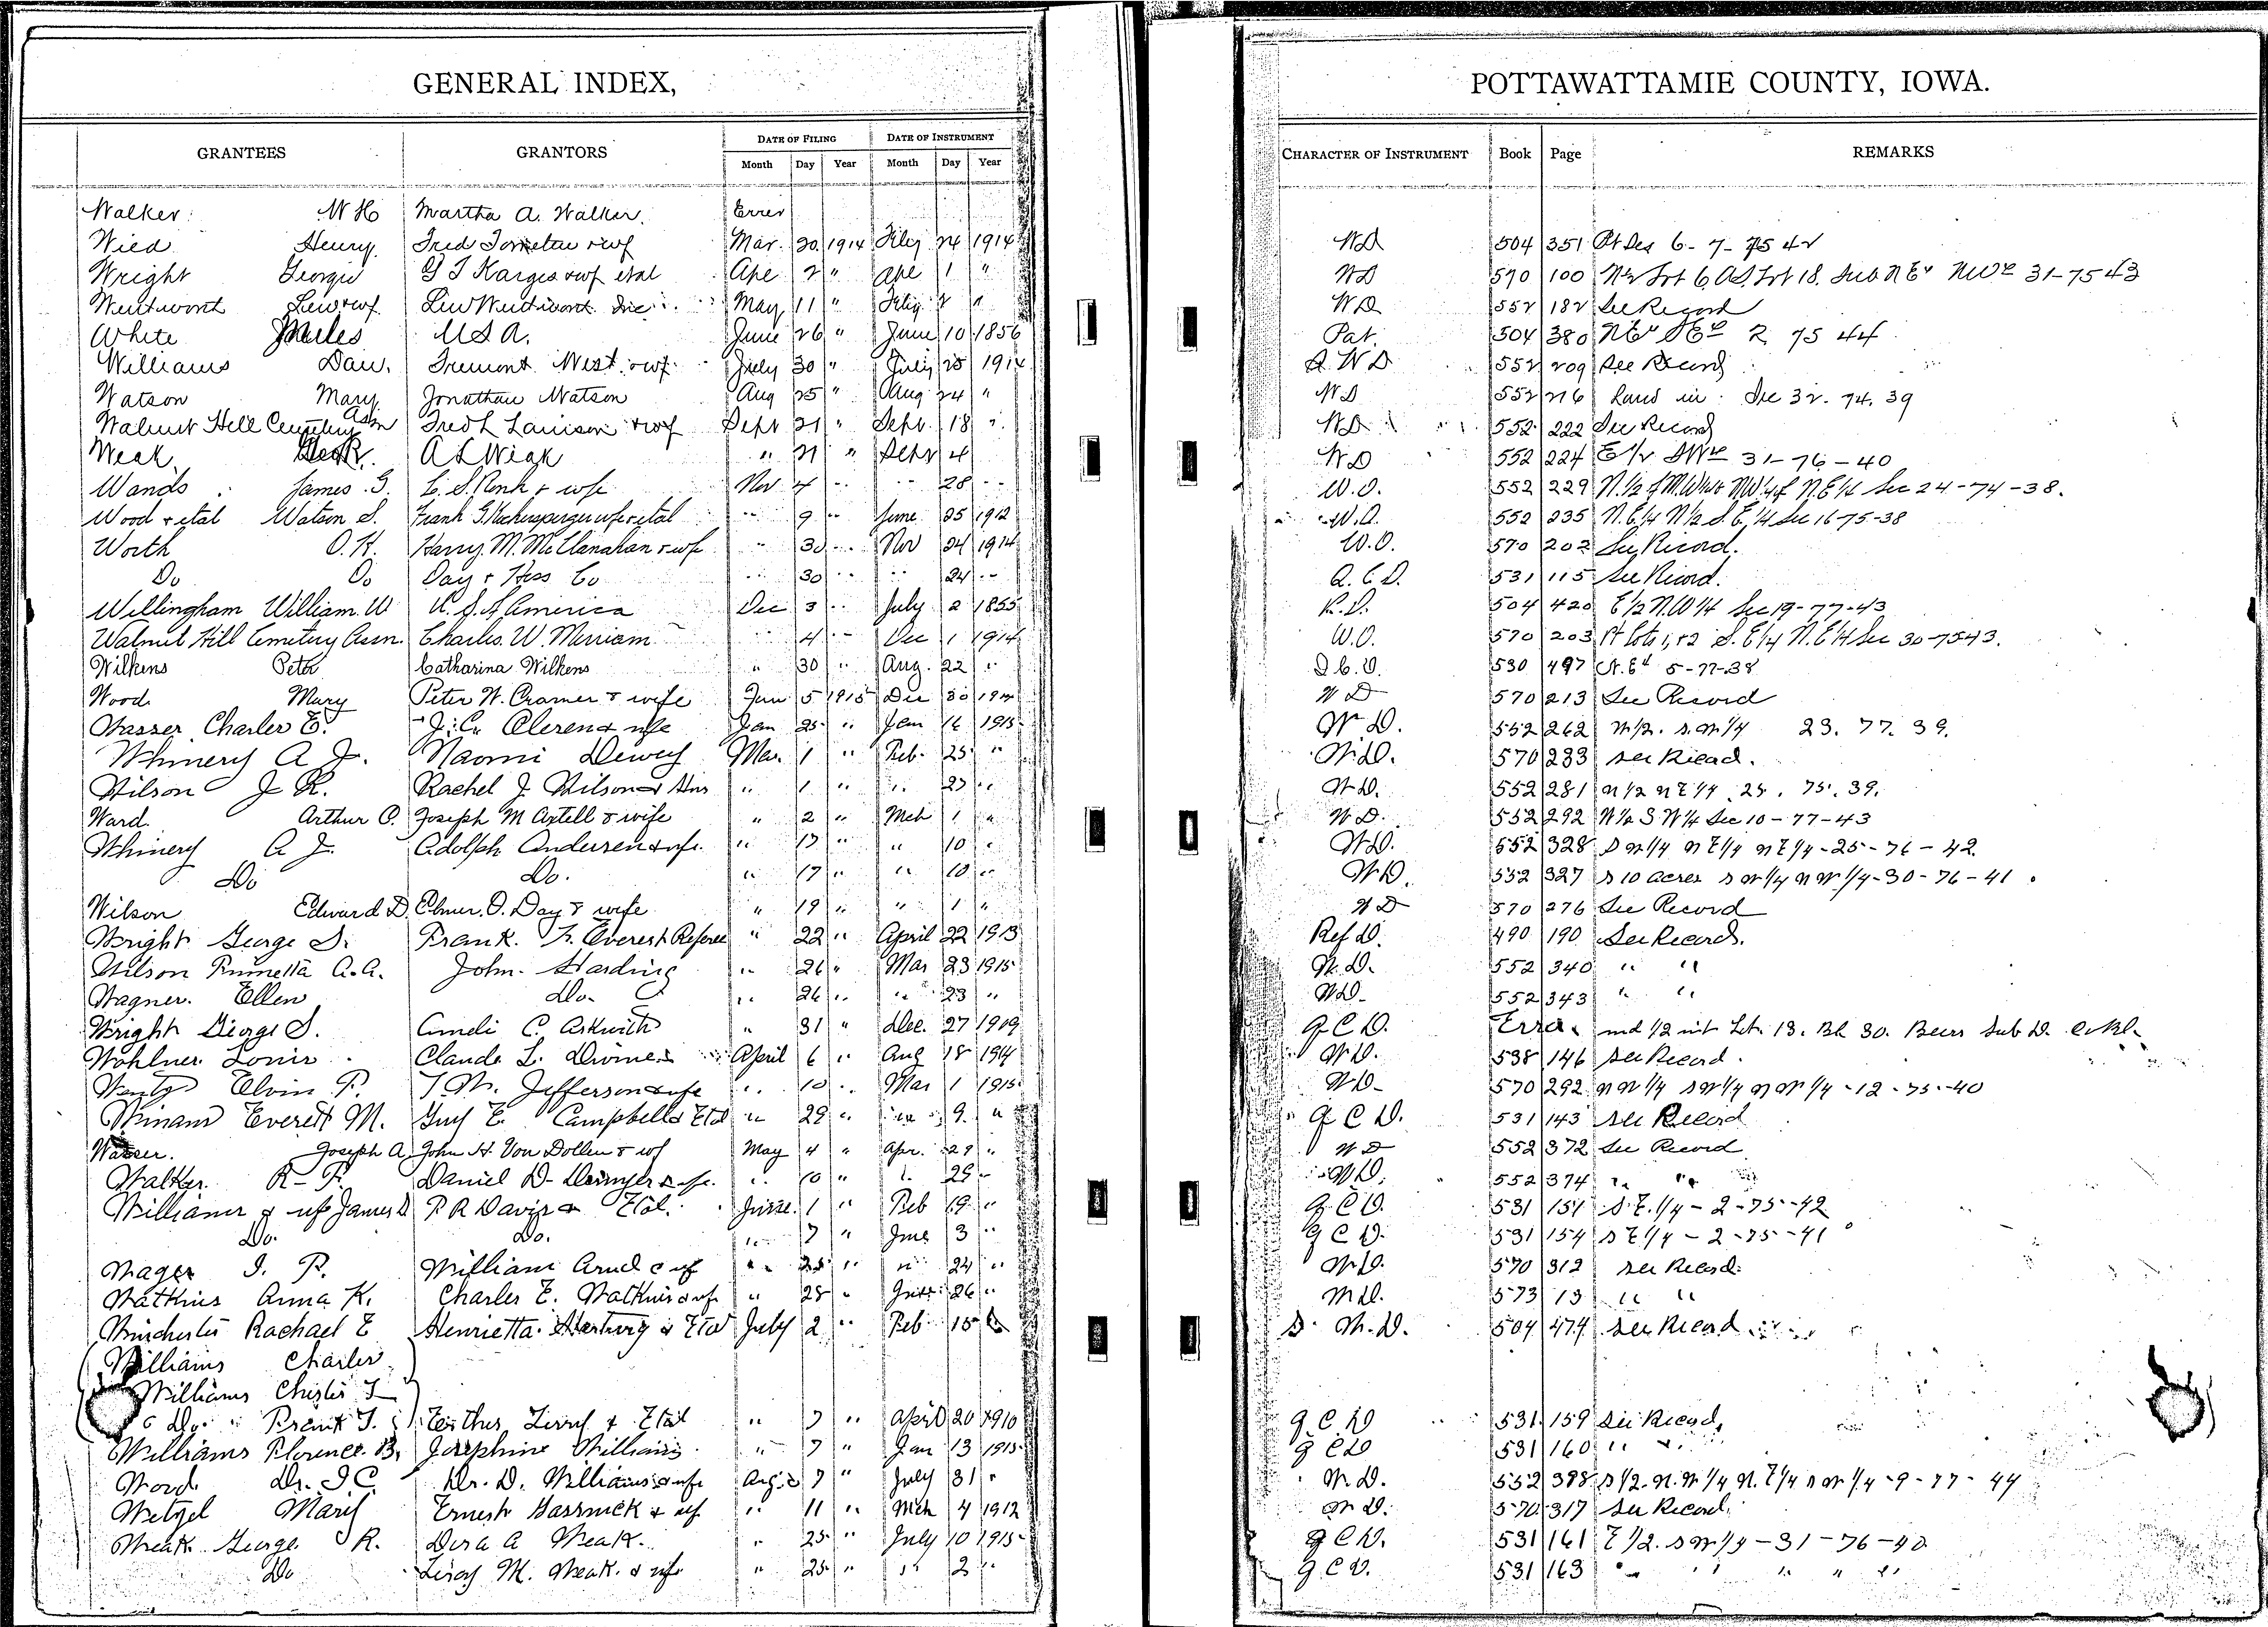 GENERAL INDEX,
POTTAWATTAMIE COUNTY, IOWA.
GRANTEES GRANTORS DATE OF FILING DATE OF INSTRUMENT CHARACTER OF INSTRUMENT Book Page REMARKS
Month Day Year Month Day Year
Walker W H Martha A. Walker Error
Wied Henry Fred wf Mar. 20 1914 24 1914 WD 504 351 Pt Des 6-7-75 42
Wright Georgie G T Karges & wf etal Apr 2 " Apr 1 " WD 570 100 Lot 6 Lot 18. Sub 31-75 43
Wentworth Lew & wf. Lew Wentworth Inc. May 11 " " WD 552 182 See Record
White Miles U S A. June 26 " June 10 1856 Pat. 504 380 2 75 44
Williams Dan. Fremont West & wf. July 30 " July 25 1914 W D 552 209 See Record
Watson Mary Jonathan Watson Aug 25 " Aug 24 " WD 552 216 Land in Sec 32. 74. 39
Walnut Hill Cemetery Assn Fred L & wf Sept 21 " Sept. 18 " WD 552 222 See Record
Weak Geo R. A L Weak " 21 " Sept 4 WD 552 224 E 1/2 SW 31-76-40
Wands James G. & wife Nov 4 " " 28 " W.D. 552 229 N.1/2 of N.W 1/4 & NW 1/4 of N.E 1/4 Sec 24-74-38.
Wood & etal Watson S. Frank G. wife & etal " 9 " June 25 1912 W.D. 552 235 N.E 1/4 N 1/2 S.E. 1/4 Sec 16-75-38
Worth O.H. Harry M. McClanahan & wf " 30 " Nov 24 1914 W.D. 570 202 See Record.
Do Do Day & Hess Co " 30 " " 24 " Q.C.D. 531 115 See Record.
Wellingham William W U.S. of America Dec 3 " July 2 1855 504 420 E 1/2 N.W 1/4 Sec 19-77-43
Walnut Hill Cemetery Assn. Charles W. Merriam " 4 " Dec 1 1914 W.D. 570 203 Pt Lots 1, & 2 S.E 1/4 N.E 1/4 Sec 30-75 43.
Wilkens Peter Catharina Wilkens " 30 " Aug. 22 " Q.C.D. 530 497 5-77-38
Wood Mary Peter W. Cramer & wife Jan 5 1915 Dec 30 1914 W D 570 213 See Record
Wasser Charles E. Jan 25 " Jan 16 1915 W D. 552 262 N 1/2. S.W 1/4 23. 77. 39.
Whinery A J. Naomi Dewey Mar. 1 " Feb. 25 " W.D. 570 233 See Record.
Wilson J R. Rachel J Wilson & Hus " 1 " " 23 " W.D. 552 281 N 1/2 N E 1/4 25. 75. 39.
Ward. Arthur C. Joseph M Axtell & wife " 2 " Mch 1 " W D. 552 292 N 1/2 S W 1/4 Sec 10-77-43
Whinery A J. Adolph Andersen & wf. " 17 " " 10 " W.D. 552 328 S W 1/4 N E 1/4 N E 1/4-25-76-42
Do Do. " 17 " " 10 " W.D. 552 327 S 10 acres S W 1/4 N W 1/4-30-76-41
Wilson Edward D. Elmer O. Day & wife " 19 " " 1 " W D 570 276 See Record
Wright George S. Frank F. Everest Referee " 22 " April 22 1913 Ref D. 490 190 See Record.
Wilson A.A. John Harding " 26 " Mar 23 1915 W.D. 552 340 " "
Wagner. Ellen Do. " 26 " " 23 " WD. 552 343 " "
Wright George S. C. Askwith " 31 " Dec. 27 1909 Q C D. Error und 1/2 int Lot 13. Bk 30. Beers Sub D.
Wohlner Louis Claude L. April 6 " Aug 18 1914 W.D. 538 146 See Record.
Wentz Elvin P. T.M. Jefferson & wife " 10 " Mar 1 1915 W.D. 570 292 N W 1/4 S W 1/4 N W 1/4-12-75-40
Winans Everett M. Guy E. Campbell & Etal " 29 " " 9 " Q C D. 531 143 See Record
Wasser. Joseph A. John H. Von Dollen & wf May 4 " Apr. 29 " W D 552 372 See Record
Walker R. F. Daniel D. & wf. " 10 " " 29 " W.D. 552 374 " "
Williams & wf James D P R Davis & Etal. June 1 " Feb 19 " Q C D. 531 151 S.E. 1/4-2-75-42
Do. Do. " 7 " June 3 " Q C D. 531 154 S E 1/4-2-75-41
Wager I. P. William Arnd & wf " 25 " " 24 " W.D. 570 312 See Record.
Watkins Anna K. Charles E. Watkins & wf " 28 " June 26 " W D. 573 13 " "
Winchester Rachael E Henrietta Hartwig & Etal July 2 " Feb 15 S. W.D. 504 474 See Record
Williams Charles
Williams Chester L
" Do " Frank J. & Etal " 7 " April 20 1910 Q.C.D 531 159 See Record,
Williams Florence B, Josephine Williams " 7 " Jan 13 1915 Q C D 531 160 " "
Word Dr. I.C. Dr. D. Williams & wife Aug. 7 " July 31 " W.D. 552 398 S 1/2. N.W 1/4 N.E 1/4 S W 1/4-9-77-44
Wetzel Mary Ernest & wf " 11 " Mch 4 1912 W D. 570 317 See Record.
Weak George R. Dora A Weak. " 25 " July 10 1915 Q C D. 531 161 E 1/2. S W 1/4-31-76-40
Do Leroy M. Weak & wife " 25 " " 2 " Q.C.D. 531 163 " " " " "